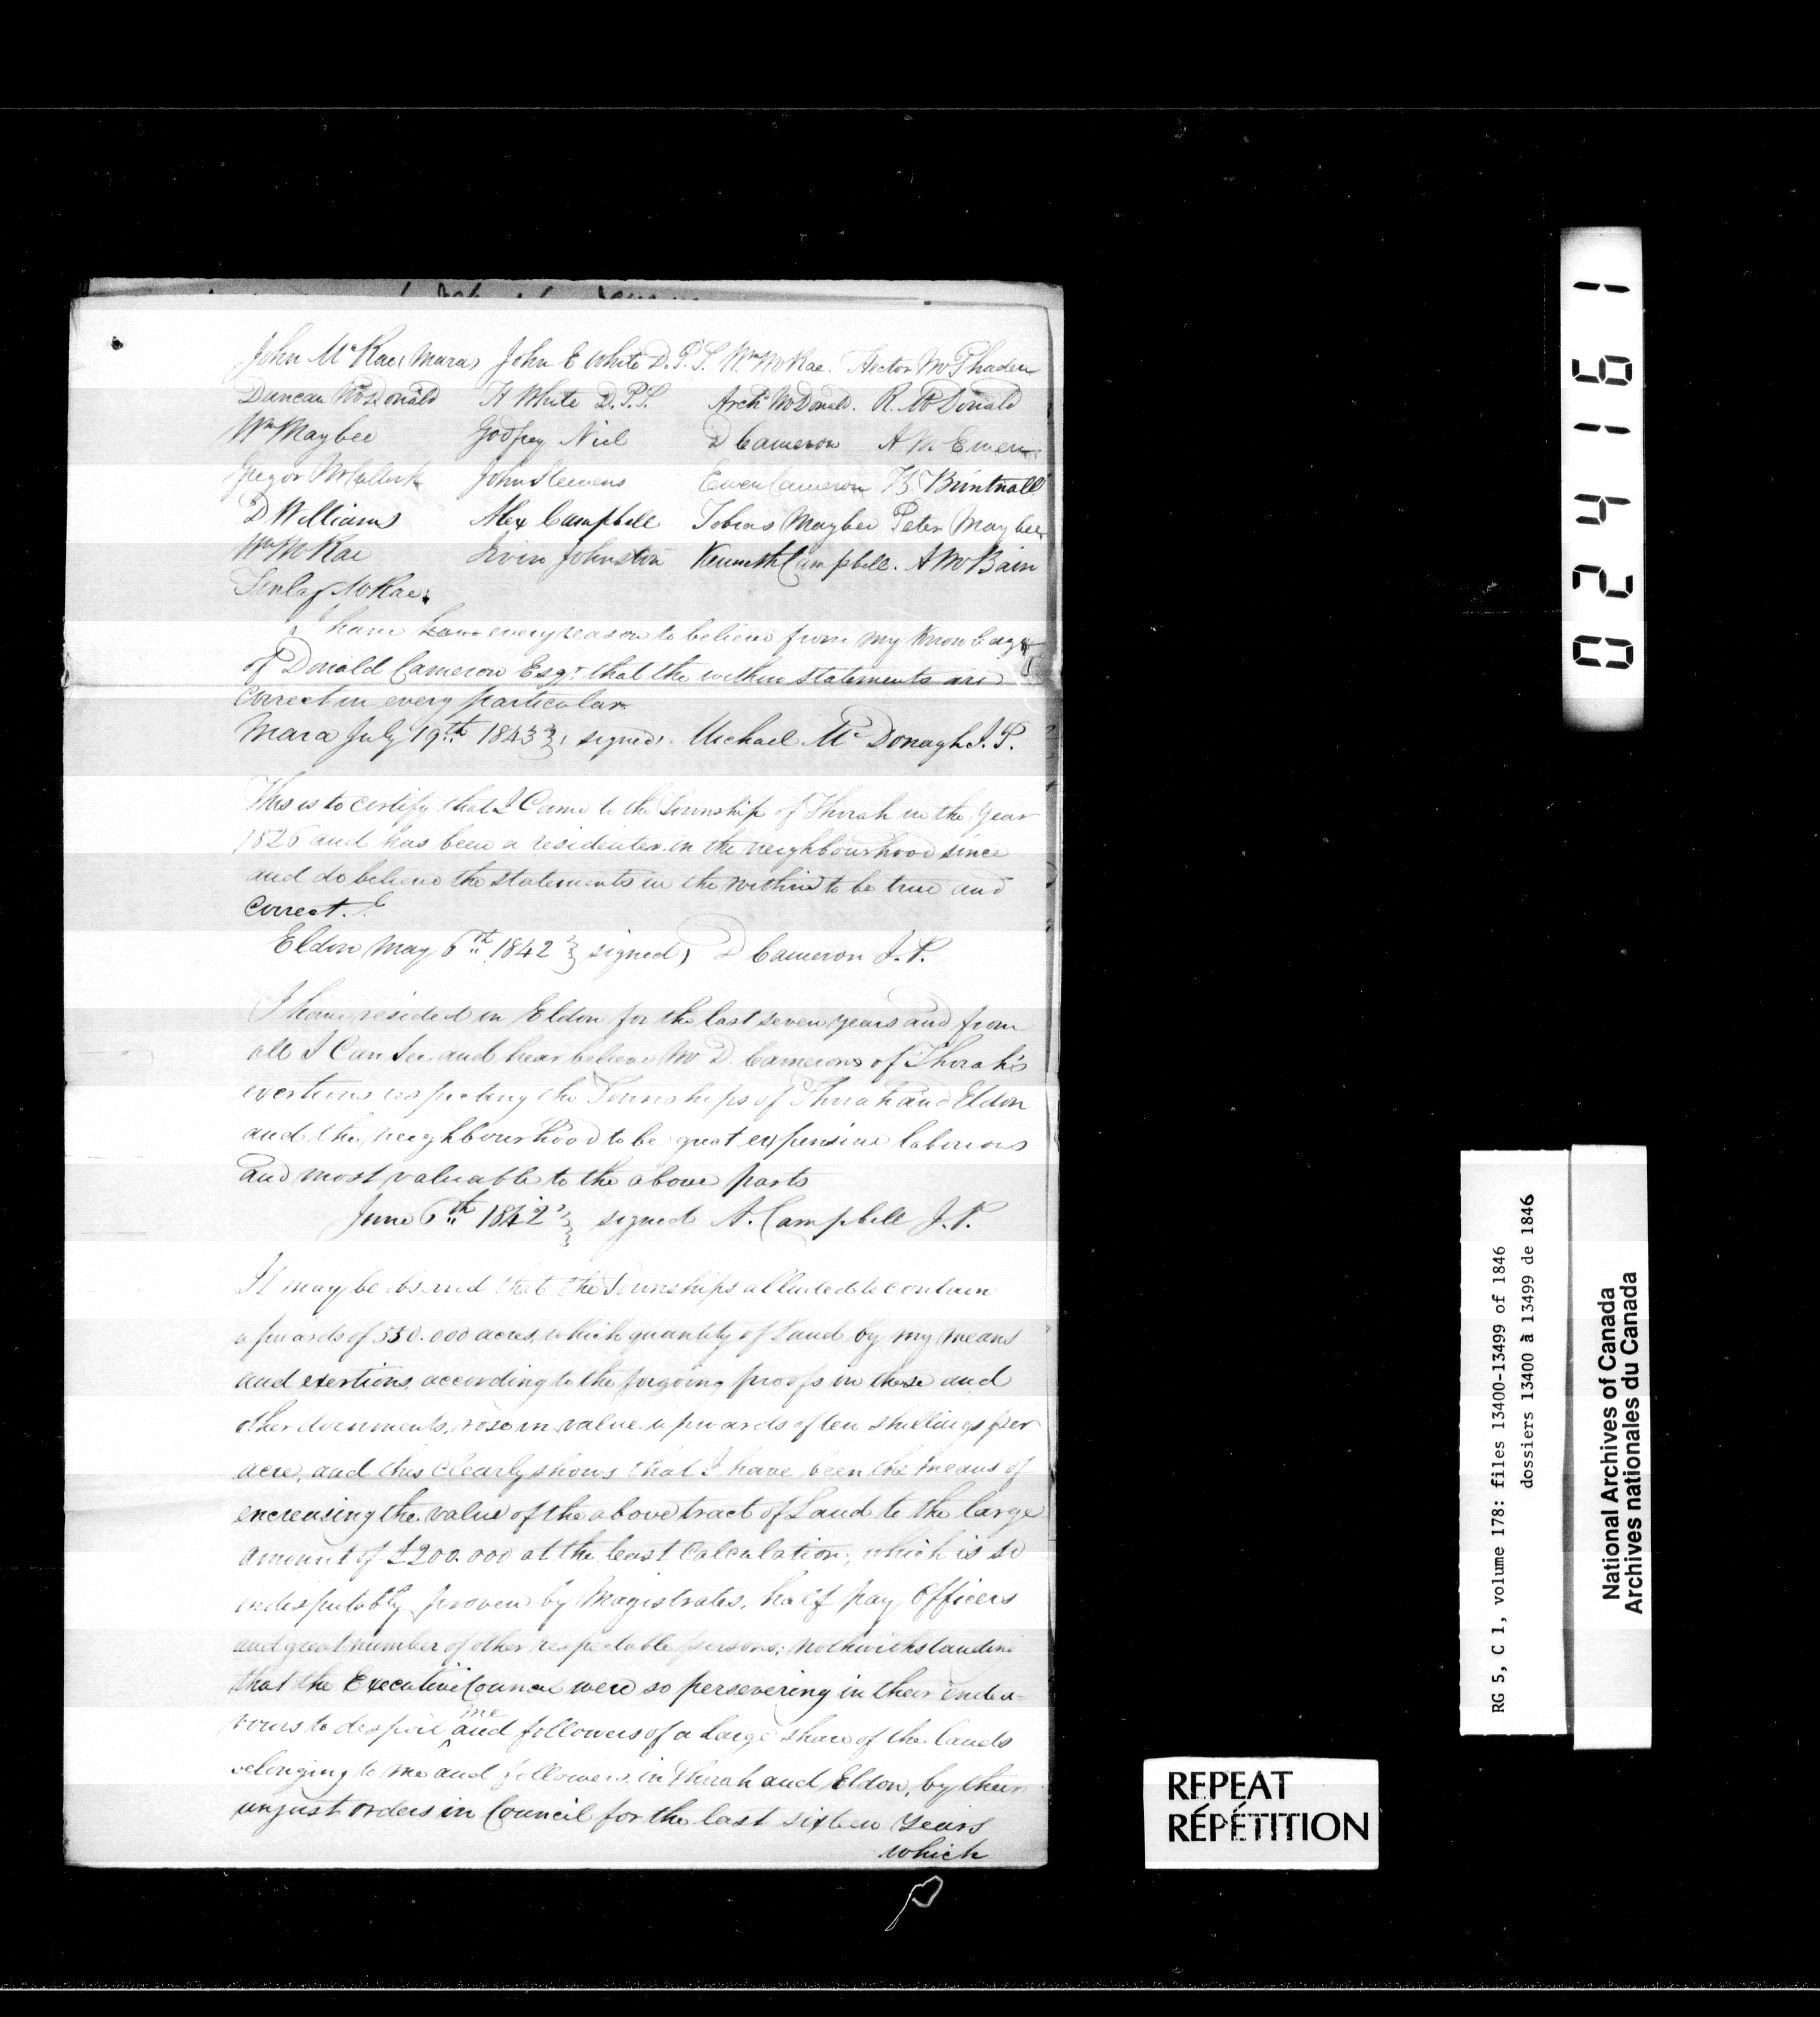 John McRae (Mara) John E White D.P.S. Wm McRae. Hector McPhaden
Duncan McDonald H White D.P.S. Archd McDonald. R. McDonald
Wm Maybee Godfrey Niel D Cameron A Mc Ewen
Gregor McCulloch John Steevens Ewen Cameron B. Brintnall
D Williams Alex Campbell Tobias Maybee Peter Maybee
Wm McRae Irvin Johnston Kenneth Campbell. A McBain
Finlay McRae
I have have every reason to believe from my knowledge
of Donald Cameron Esqr that the within statements are
correct in every particular
Mara July 19th 1843 signed. Michael McDonagh J.P.
This is to certify that I Came to the Township of Thorah in the Year
1826 and has been a residenter in the neighbourhood since
and do believe the statements in the within to be true and
Correct.
Eldon May 6th 1842 signed) D Cameron J.P.
I have resided in Eldon for the last seven years and from
all I Can See and hear believe Mr D. Camerons of Thorah's
exertions respecting the Townships of Thorah and Eldon
and the neighbourhood to be great expensive laborious
and most valuable to the above parts
June 6th 1842 signed A. Campbell J.P.
It may be observed that the Townships alluded to contain
upwards of 550.000 acres, which quantity of Land by my means
and exertions according to the forgoing proofs in these and
other documents, rose in value upwards of ten shillings per
acre, and this Clearly shows that I have been the means of
encreasing the value of the above tract of Land to the large
amount of £200.000 at the least Calculation, which is so
indisputably proven by Magistrates, half pay Officers
and great number of other respectable persons; nothwithstanding
that the Executive Council were so persevering in their endea=
vours to despoil me and followers of a large share of the lands
belonging to me and followers in Thorah and Eldon, by their
unjust orders in Council for the last sixteen Years
which
024161
RG 5, C 1, volume 178: files 13400-13499 of 1846
dossiers 13400 à 13499 de 1846
National Archives of Canada
Archives nationales du Canada
REPEAT
RÉPÉTITION